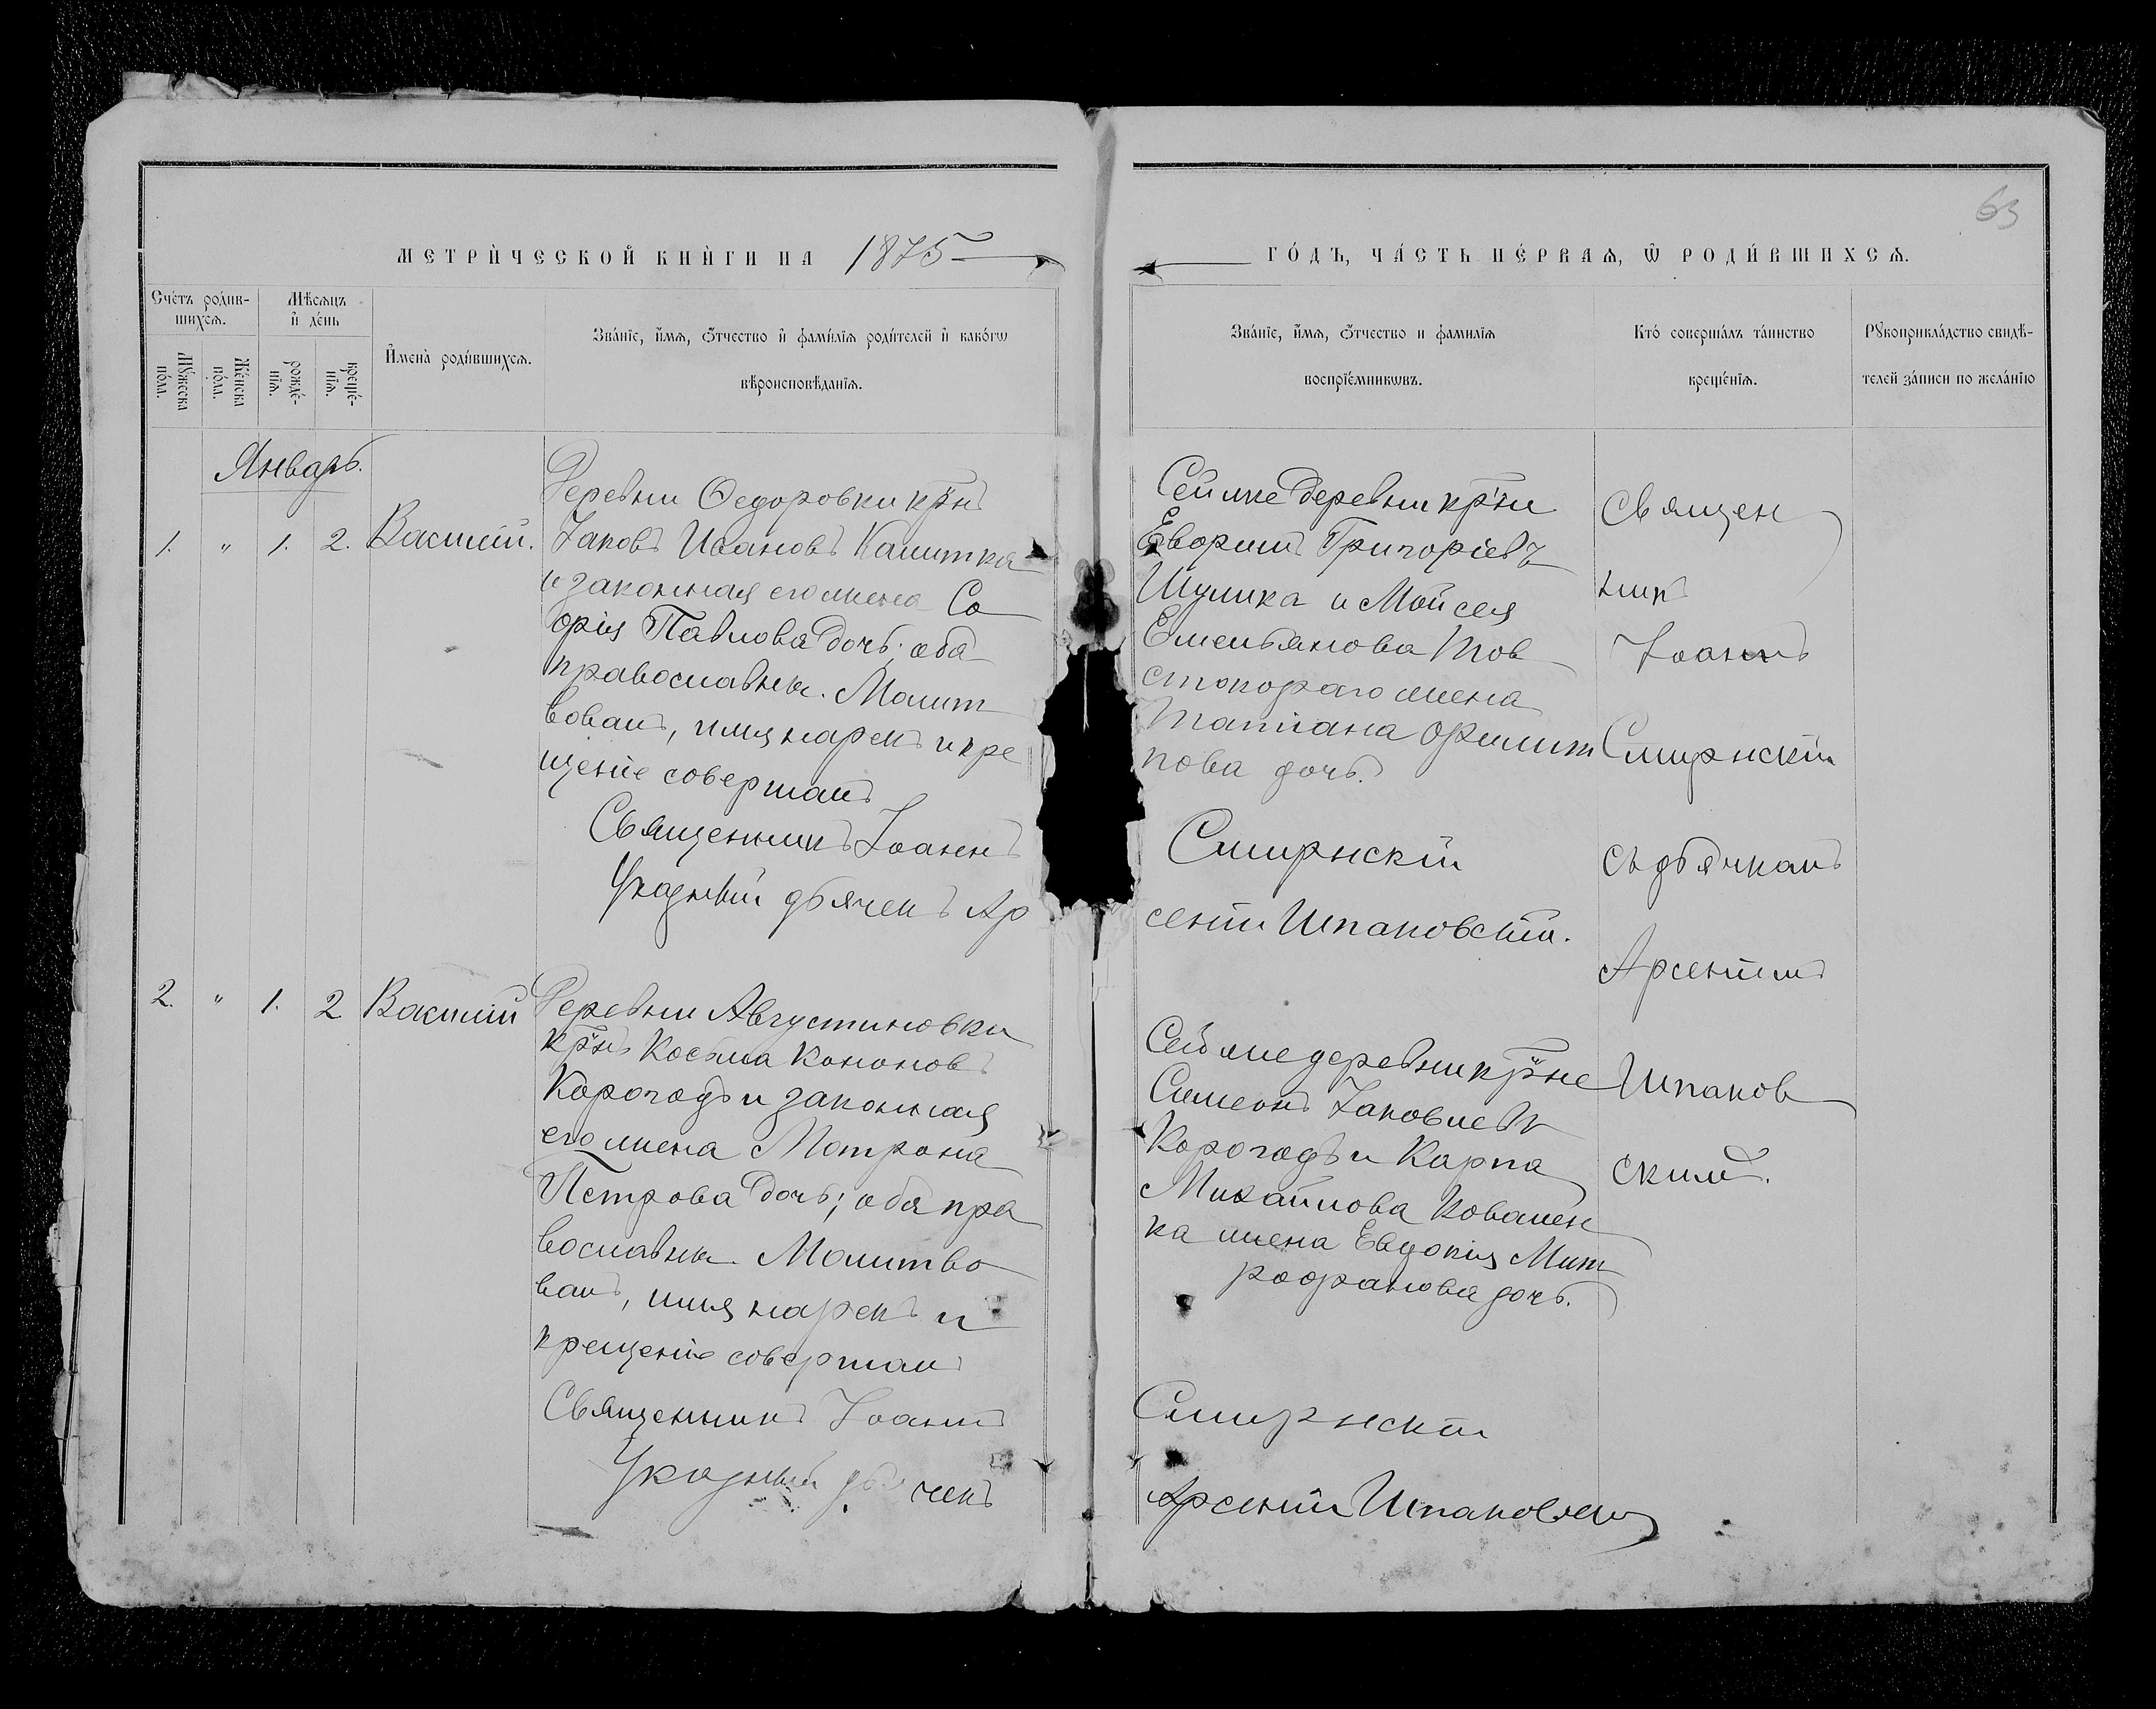 63
МЕТРИ́ЧЕСКОЙ КНИ́ГИ НА 1875
ГО́ДЪ, ЧА́СТЬ ПЕ́РВАѦ, Ѿ РОДИ́ВШИХСѦ.
Сче́тъ роди́в-
шихсѧ.
Мѣ́сѧцъ
и҆ де́нь
Му́жеска
по́ла.
Же́нска
по́ла.
рожде́-
нїѧ.
креще́-
нїѧ.
И҆мена̀ роди́вшихсѧ.
Зва́нїе, и҆́мѧ, ѻ҆́тчество и҆ фами́лїѧ роди́телей и҆ како́гѡ
вѣроисповѣ́данїѧ.
Зва́нїе, и҆́мѧ, ѻ҆́тчество и фами́лїѧ
воспрїе́мникѡвъ.
Кто́ соверша́лъ та́инство
креще́нїѧ.
Рꙋкоприкла́дство свидѣ́-
телей за́писи по жела́нїю
Январь.
1. " 1. 2. Василій.
Деревни Ѳедоровки крнъ
Іаковъ Ивановъ Калитка
и законная его жена Со
фія Павлова дочь; оба
православны. Молит
вовалъ, имя нарекъ и кре
щеніе совершалъ
Священникъ Іоаннъ
Указный дьячекъ Ар
Сей же деревни крни
Григоріевъ
Шулика и Мойсея
Емельянова Тов
жена
Татіана Филип
пова дочь.
Смирнскій
сеній Шпаковскій.
Священ
никъ
Іоаннъ
Смирнскій
съ дьячкомъ
Арсеніемъ
Шпаков
скимъ.
2. " 1. 2 Василій
Деревни Августиновки
крнъ Косьма Кононовъ
Корогодъ и законная
его жена Мотрона
Петрова дочь; оба пра
вославны. Молитво
валъ, имя нарекъ и
крещеніе совершалъ
Священникъ Іоаннъ
Указный дьячекъ
Сей же деревни крне
Симеонъ Іаковлевъ
Корогодъ и Карпа
Михайлова Ковален
ка жена Евдокія Мит
рофанова дочь.
Смирнскій
Арсеній Шпаковскій